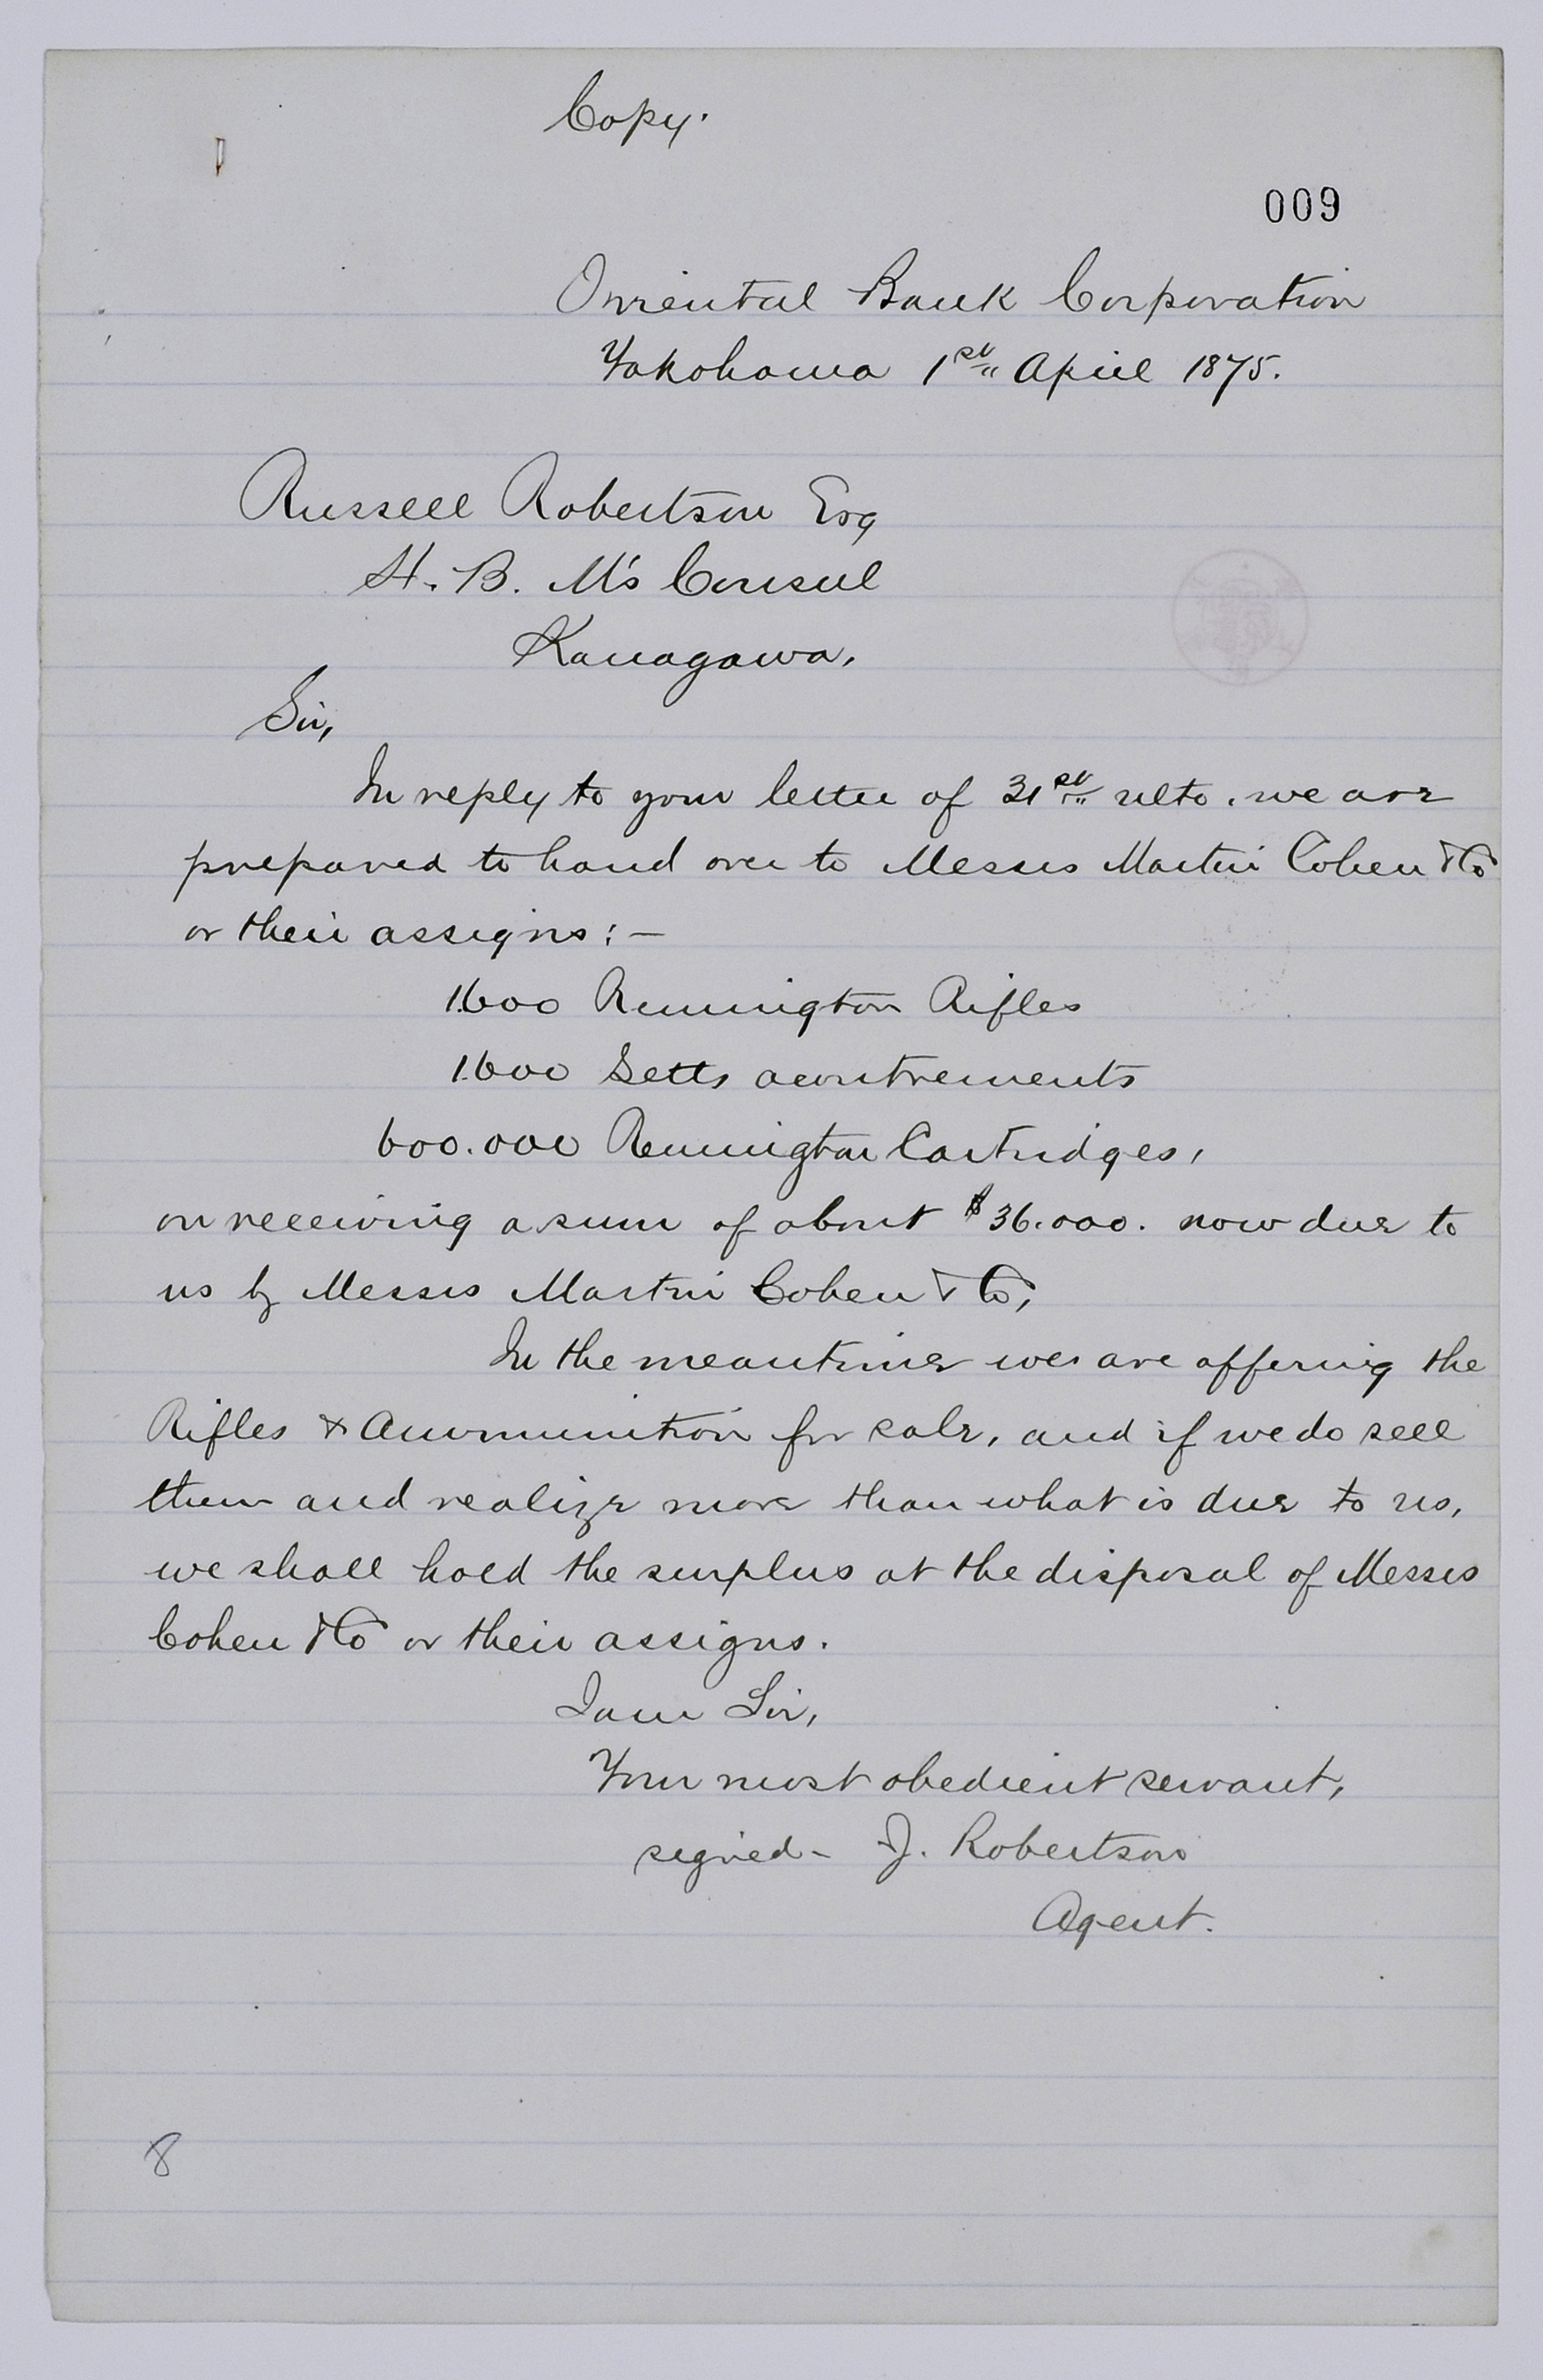 Copy.
009
Oriental Bank Corporation
Yokohama 1st April 1875.
Russell Robertson Esq
H. B. M's Consul
Kanagawa.
Sir,
In reply to your letter of 31st ulto. we are
prepared to hand over to Messrs Martin Cohen & Co
or their assigns:—
1600 Remington Rifles
1600 Setts acoutrements
600.000 Remington Cartridges,
on receiving a sum of about $36.000. now due to
us by Messrs Martin Cohen & Co,
In the meantime we are offering the
Rifles & Ammunition for sale, and if we do sell
them and realize more than what is due to us,
we shall hold the surplus at the disposal of Messrs
Cohen & Co or their assigns.
I am Sir,
Your most obedient servant,
signed - J. Robertson
Agent.
8